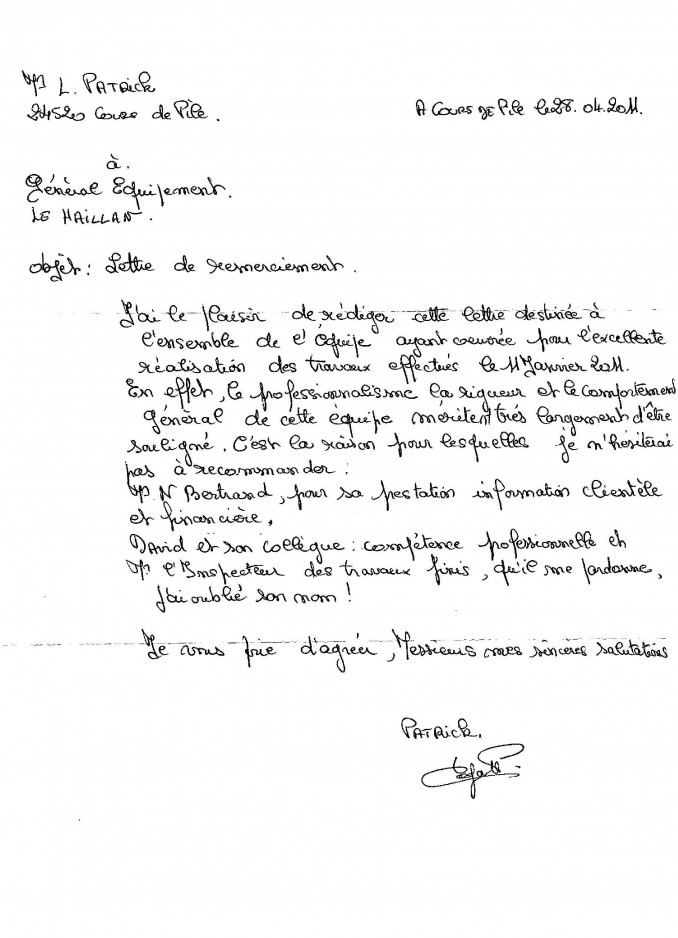 Mr L. PATRICK
24520 Cours de Pile.
A COURS DE Pile le 28.04.2011.
à.
Général Equipement.
LE HAILLAN.
Objet: Lettre de remerciement.
J'ai le plaisir de rédiger cette lettre destinée à
l'ensemble de l'équipe ayant oeuvrée pour l'excellente
réalisation des travaux effectués le 11 Janvier 2011.
En effet, le professionnalisme la rigueur et le comportement
général de cette équipe méritent très largement d'être
souligné. C'est la raison pour lesquelles je n'hésiterai
pas à recommander:
Mr N Bertrand, pour sa prestation information clientèle
et financière,
David et son collègue: compétence professionnelle et
Mr l'Inspecteur des travaux finis, qu'il me pardonne,
j'ai oublié son nom!
Je vous prie d'agréer, Messieurs mes sincères salutations
PATRICK.